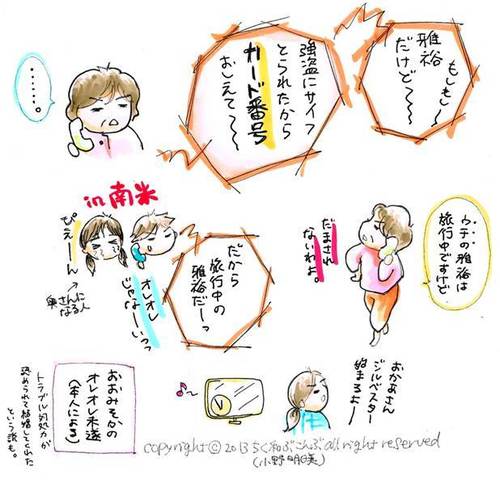 もしもし〜
雅裕
だけど〜〜
強盗にサイフ
とられたから
カード番号
おしえて〜〜
・・・・・。
ウチの雅裕は
旅行中ですけど
だまされ
ないわよ。
in南米
だから
旅行中の
雅裕だーっ
オレオレ
じゃなーいっっ
ぴえーーん
奥さんに
なる人
おかあさん
ジルベスター
始まるよー
おおみそかの
オレオレ未遂
(本人による)
トラブル対処力が
認められて結婚してくれた
という説も。
copyright © 2013 ちくわぶこんぶ all right reserved
(小野明美)